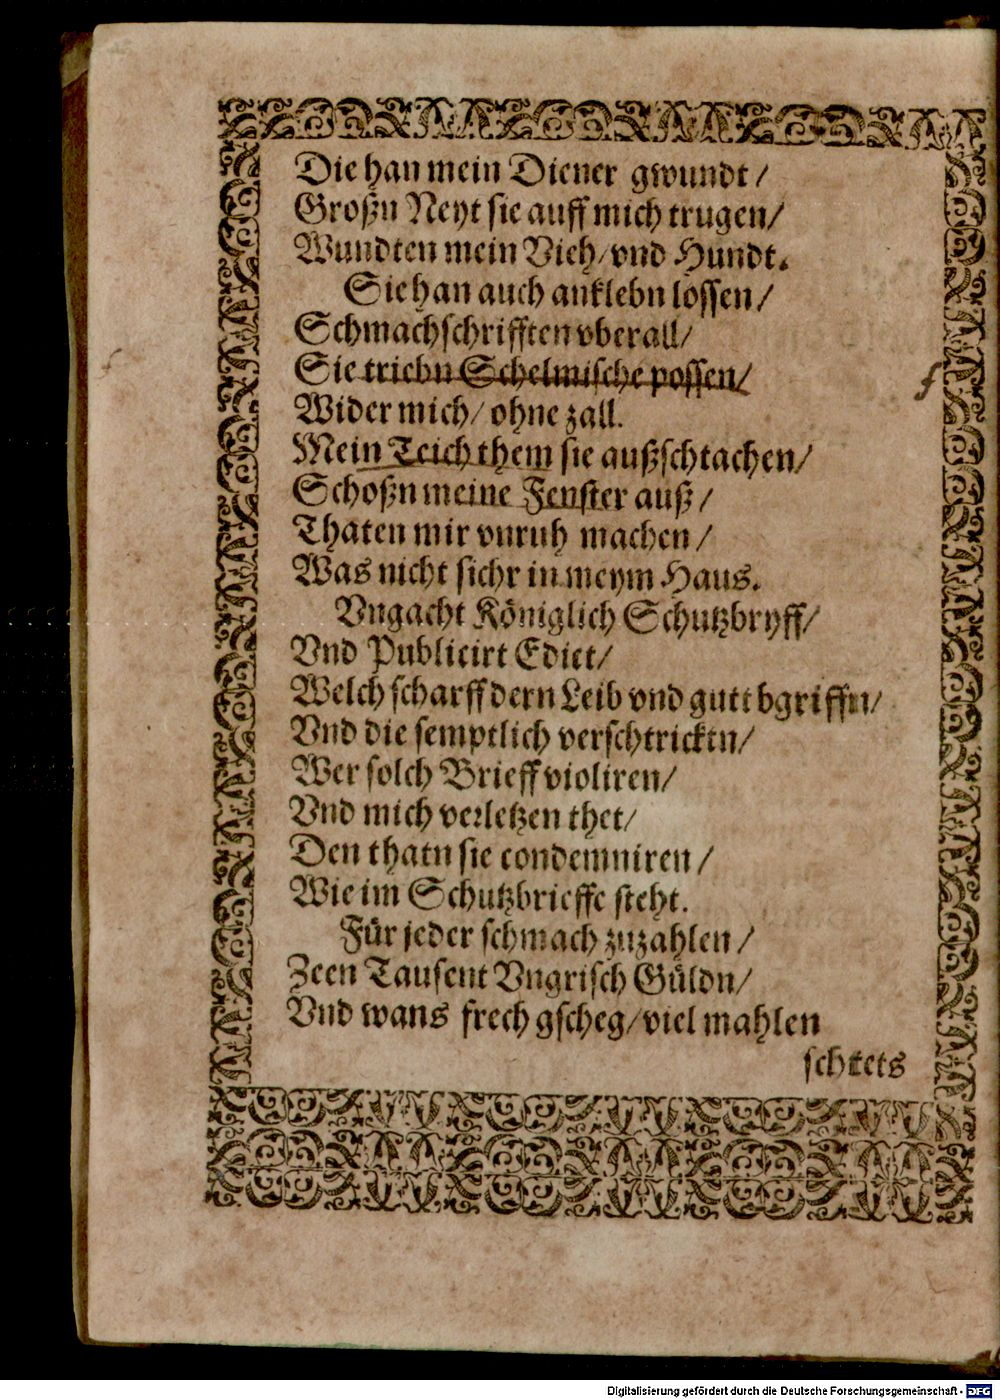 Die han mein Diener gwundt/
Großn Neyt sie auff mich trugen/
Wundten mein Vieh/vnd Hundt.
Sie han auch anklebn lossen/
Schmachschrifften vberall/
Sie triebn Schelmische possen/
Wider mich/ ohne zall.
Mein Teich them sie außschtachen/
Schoßn meine Fenster auß/
Thaten mir vnruh machen/
Was nicht sichr in meym Haus.
Vngacht Königlich Schutzbryff/
Vnd Publicirt Edict/
Welch scharff dern Leib vnd gutt bgriffn/
Vnd die semptlich verschtricktn/
Wer solch Brieff violiren/
Vnd mich verletzen thet/
Den thatn sie condemniren/
Wie im Schutzbrieffe steht.
Für jeder schmach zuzahlen/
Zeen Tausent Vngrisch Güldn/
Vnd wans frech gscheg/viel mahlen
schtets
Digitalisierung gefördert durch die Deutsche Forschungsgemeinschaft - DFG